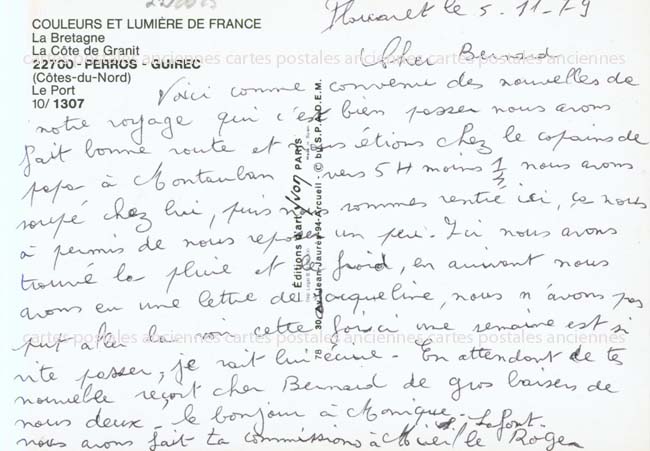 COULEURS ET LUMIÈRE DE FRANCE
La Bretagne
La Côte de Granit
22700 - PERROS - GUIREC
(Côtes-du-Nord)
Le Port
10/ 1307
le 5-11-79
Cher Bernard
Voici comme convenu des nouvelles de
notre voyage qui c'est bien passer nous avons
fait bonne route et nous étions chez le copains de
papa à Montauban vers 5 H moins 1/2 nous avons
soupé chez lui, puis nous sommes rentré ici, ça nous
à permis de nous reposer un peu. Ici nous avons
trouvé la pluie et le froid, en arrivant nous
avons eu une lettre de Jacqueline, nous n'avons pas
put aller la voir cette fois ci une semaine est si
vite passer, je vait lui écrire - En attendant de tes
nouvelle reçoit cher Bernard de gros baisers de
nous deux - le bonjour à Monique - Lafont.
nous avons fait ta commissions à
Editions d'art yvon PARIS
30, Av. Jean-Jaurès-94-Arcueil - © by S.P.A.D.E.M.
78
cartes postales anciennes cartes postales anciennes
cartes postales anciennes cartes postales anciennes